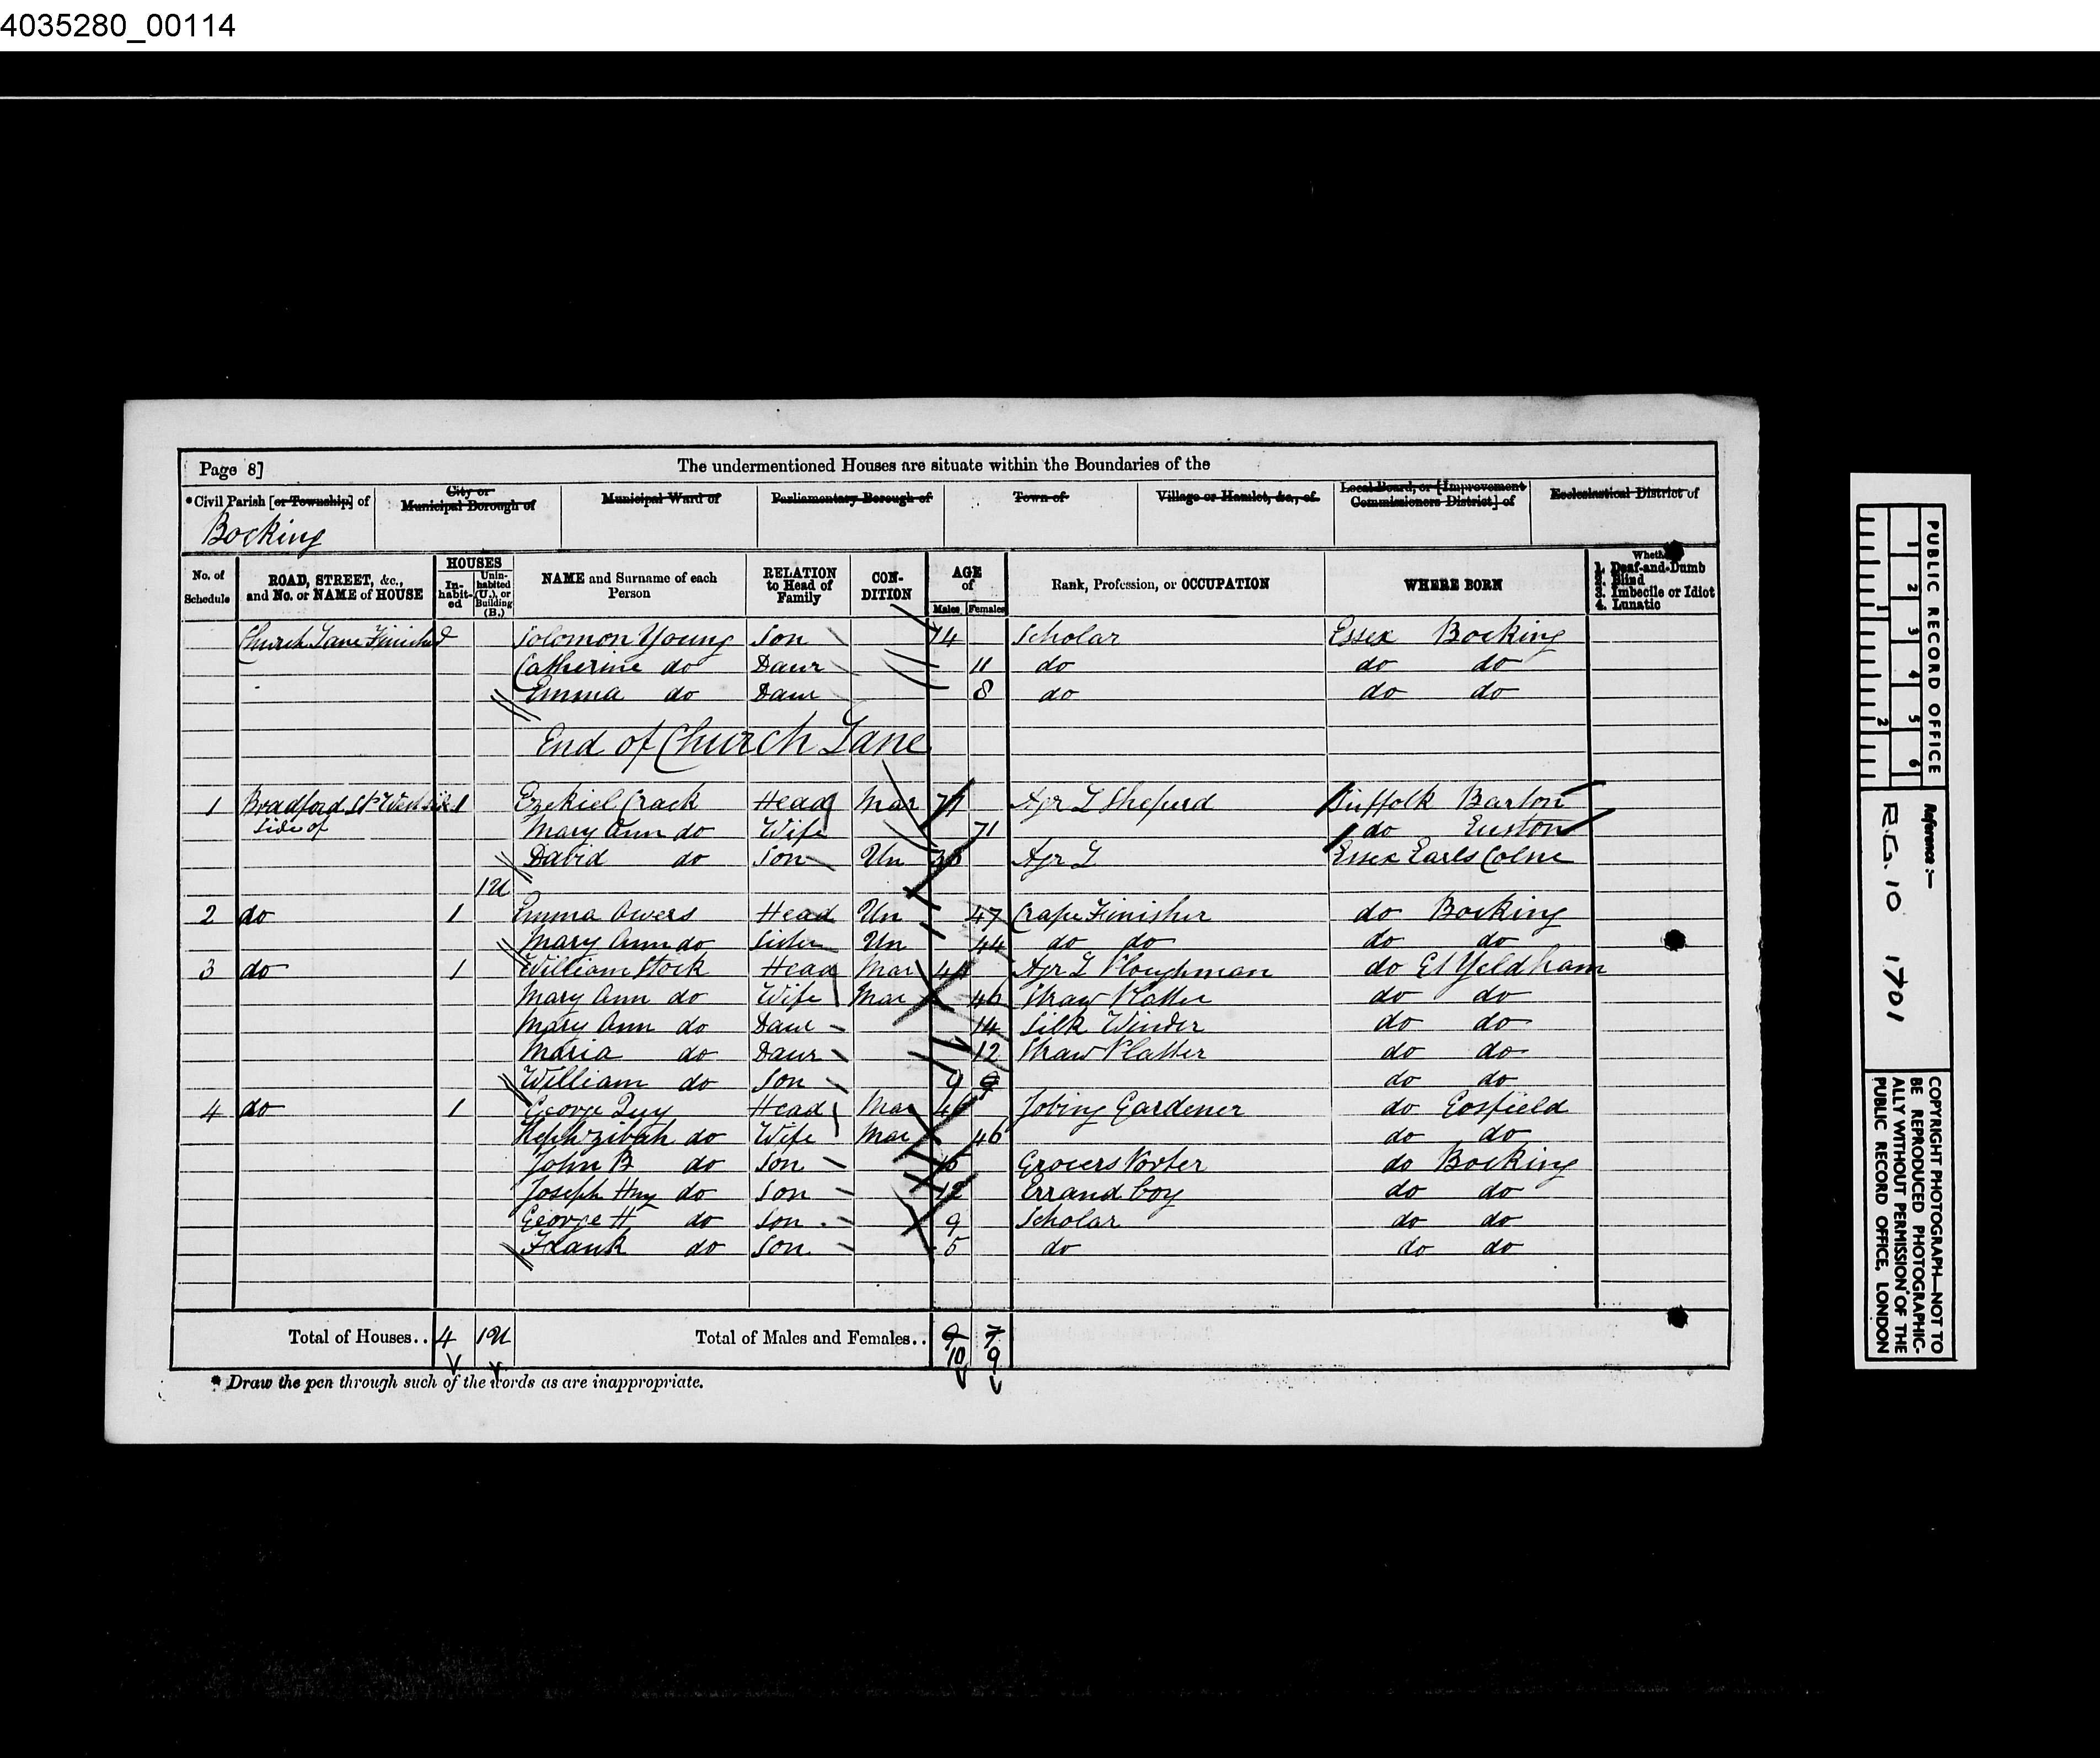 4035280_00114
Page 8] The undermentioned Houses are situate within the Boundaries of the
*Civil Parish [or Township] of City or Municipal Borough of Municipal Ward of Parliamentary Borough of Town of Village or Hamlet, &c., of Local Board, or [Improvement Commissioners District] of Ecclesiastical District of
Bocking
No. of Schedule ROAD, STREET, &c., and No. or NAME of HOUSE HOUSES In-habit-ed Unin-habited (U.), or Building (B.) NAME and Surname of each Person RELATION to Head of Family CON-DITION AGE of Males Females Rank, Profession, or OCCUPATION WHERE BORN 1. Deaf-and-Dumb 2. Blind 3. Imbecile or Idiot 4. Lunatic
Church Lane Finished Solomon Young Son 14 Scholar Essex Bocking
Catherine do Daur 11 do do do
Emma do Daur 8 do do do
End of Church Lane
1 Bradford St West side 1 Ezekiel Crack Head Mar 71 Agr L Sheperd Suffolk Barton
Side of Mary Ann do Wife 71 do Euston
David do Son Un Agr L Essex Earls Colne
1U
2 do 1 Emma Owers Head Un 47 Crape Finisher do Bocking
Mary Ann do Sister Un 44 do do do do
3 do 1 William Stock Head Mar Agr L Ploughman do Gt Yeldham
Mary Ann do Wife Mar 46 Straw Platter do do
Mary Ann do Daur 14 Silk Winder do do
Maria do Daur 12 Straw Platter do do
William do Son 9 9 do do
4 do 1 George Quy Head Mar Jobing Gardener do Gosfield
Hephzibah do Wife Mar 46 do do
John B do Son Grocers Porter do Bocking
Joseph Hny do Son 12 Errand boy do do
George H do Son 9 Scholar do do
Frank do Son 5 do do do
Total of Houses.. 4 1U Total of Males and Females.. 9 7
10 9
* Draw the pen through such of the words as are inappropriate.
PUBLIC RECORD OFFICE
1 2 3 4 5 6
1 2
Reference :-
R.G. 10 1701
COPYRIGHT PHOTOGRAPH—NOT TO
BE REPRODUCED PHOTOGRAPHIC-
ALLY WITHOUT PERMISSION OF THE
PUBLIC RECORD OFFICE, LONDON